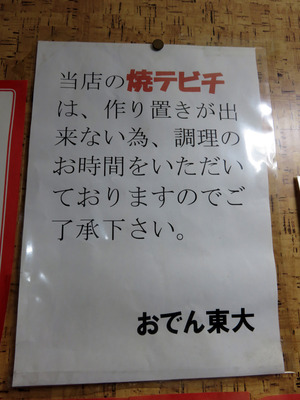 当店の焼テビチ
は、作り置きが出
来ない為、調理の
お時間をいただい
ておりますのでご
了承下さい。
おでん東大